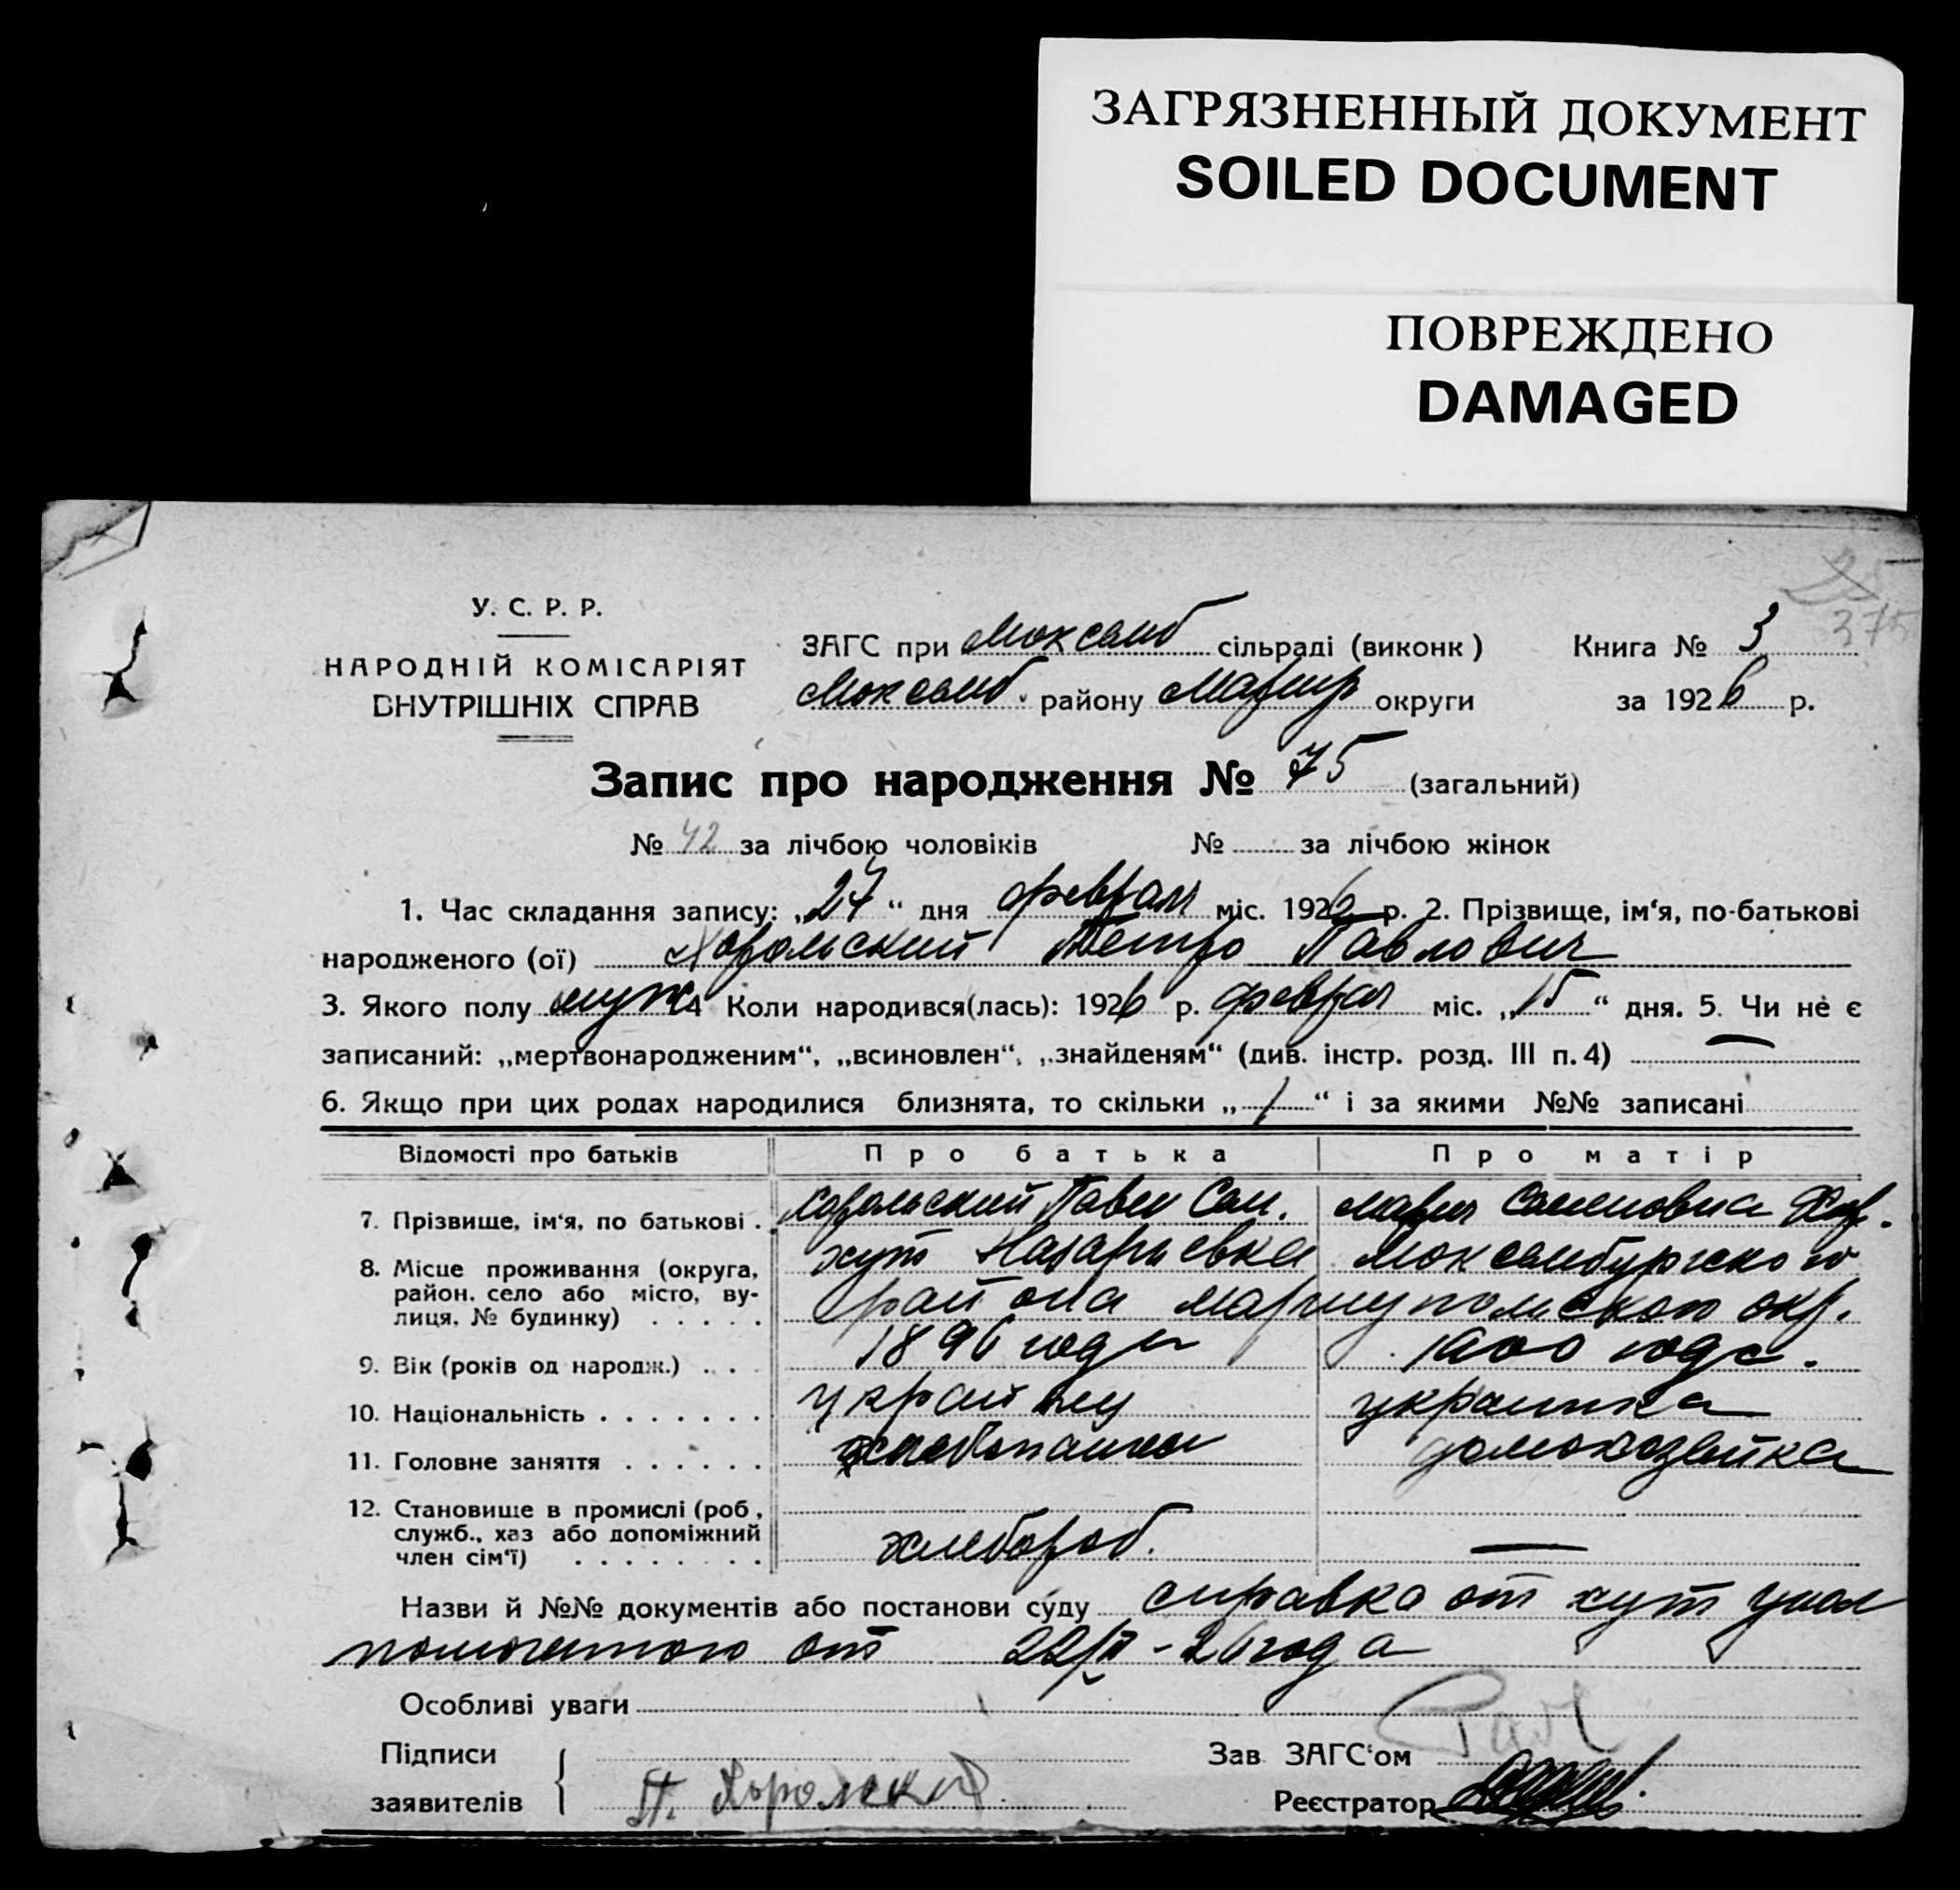 ЗАГРЯЗНЕННЫЙ ДОКУМЕНТ
SOILED DOCUMENT
ПОВРЕЖДЕНО
DAMAGED
375
У. С. Р. Р.
НАРОДНІЙ КОМІСАРІЯТ
ВНУТРІШНІХ СПРАВ
ЗАГС при Люксемб сільраді (виконк) Книга № 3
Люксемб. району Маріюп округи за 1926 р.
Запис про народження № 75 (загальний)
№ 42 за лічбою чоловіків № за лічбою жінок
1. Час складання запису: „27“ дня февраля міс. 1926 р. 2. Прізвище, ім‘я, по-батькові
народженого (ої) Хорольский Петро Павлович
3. Якого полу муж 4 Коли народився(лась): 1926 р. февраля міс. „15“ дня. 5. Чи не є
записаний: „мертвонародженим“, „всиновлен“, „знайденям“ (див. інстр. розд. III п. 4) —
6. Якщо при цих родах народилися близнята, то скільки „ / “ і за якими №№ записані
Відомості про батьків Про батька Про матір
7. Прізвище, ім‘я, по батькові . Хорольский Павел Сам. Мария Семеновна Хор.
8. Місце проживання (округа, хут Назарьевка Люксембургского
район. село або місто, ву- района Мариупольской окр.
лиця. № будинку) . . . . .
9. Вік (років од народж.) . . . 1896 года 1900 года.
10. Національність . . . . . . . украинец украинка
11. Головне заняття . . . . . . хлебопашец домохозяйка
12. Становище в промислі (роб,
служб., хаз або допоміжний хлебороб. —
член сім‘ї) . . . . . . . .
Назви й №№ документів або постанови суду справка от хут упол
от 22/II - 26 года
Особливі уваги
Підписи Зав ЗАГС‘ом
заявителів П. Хорольский Реєстратор